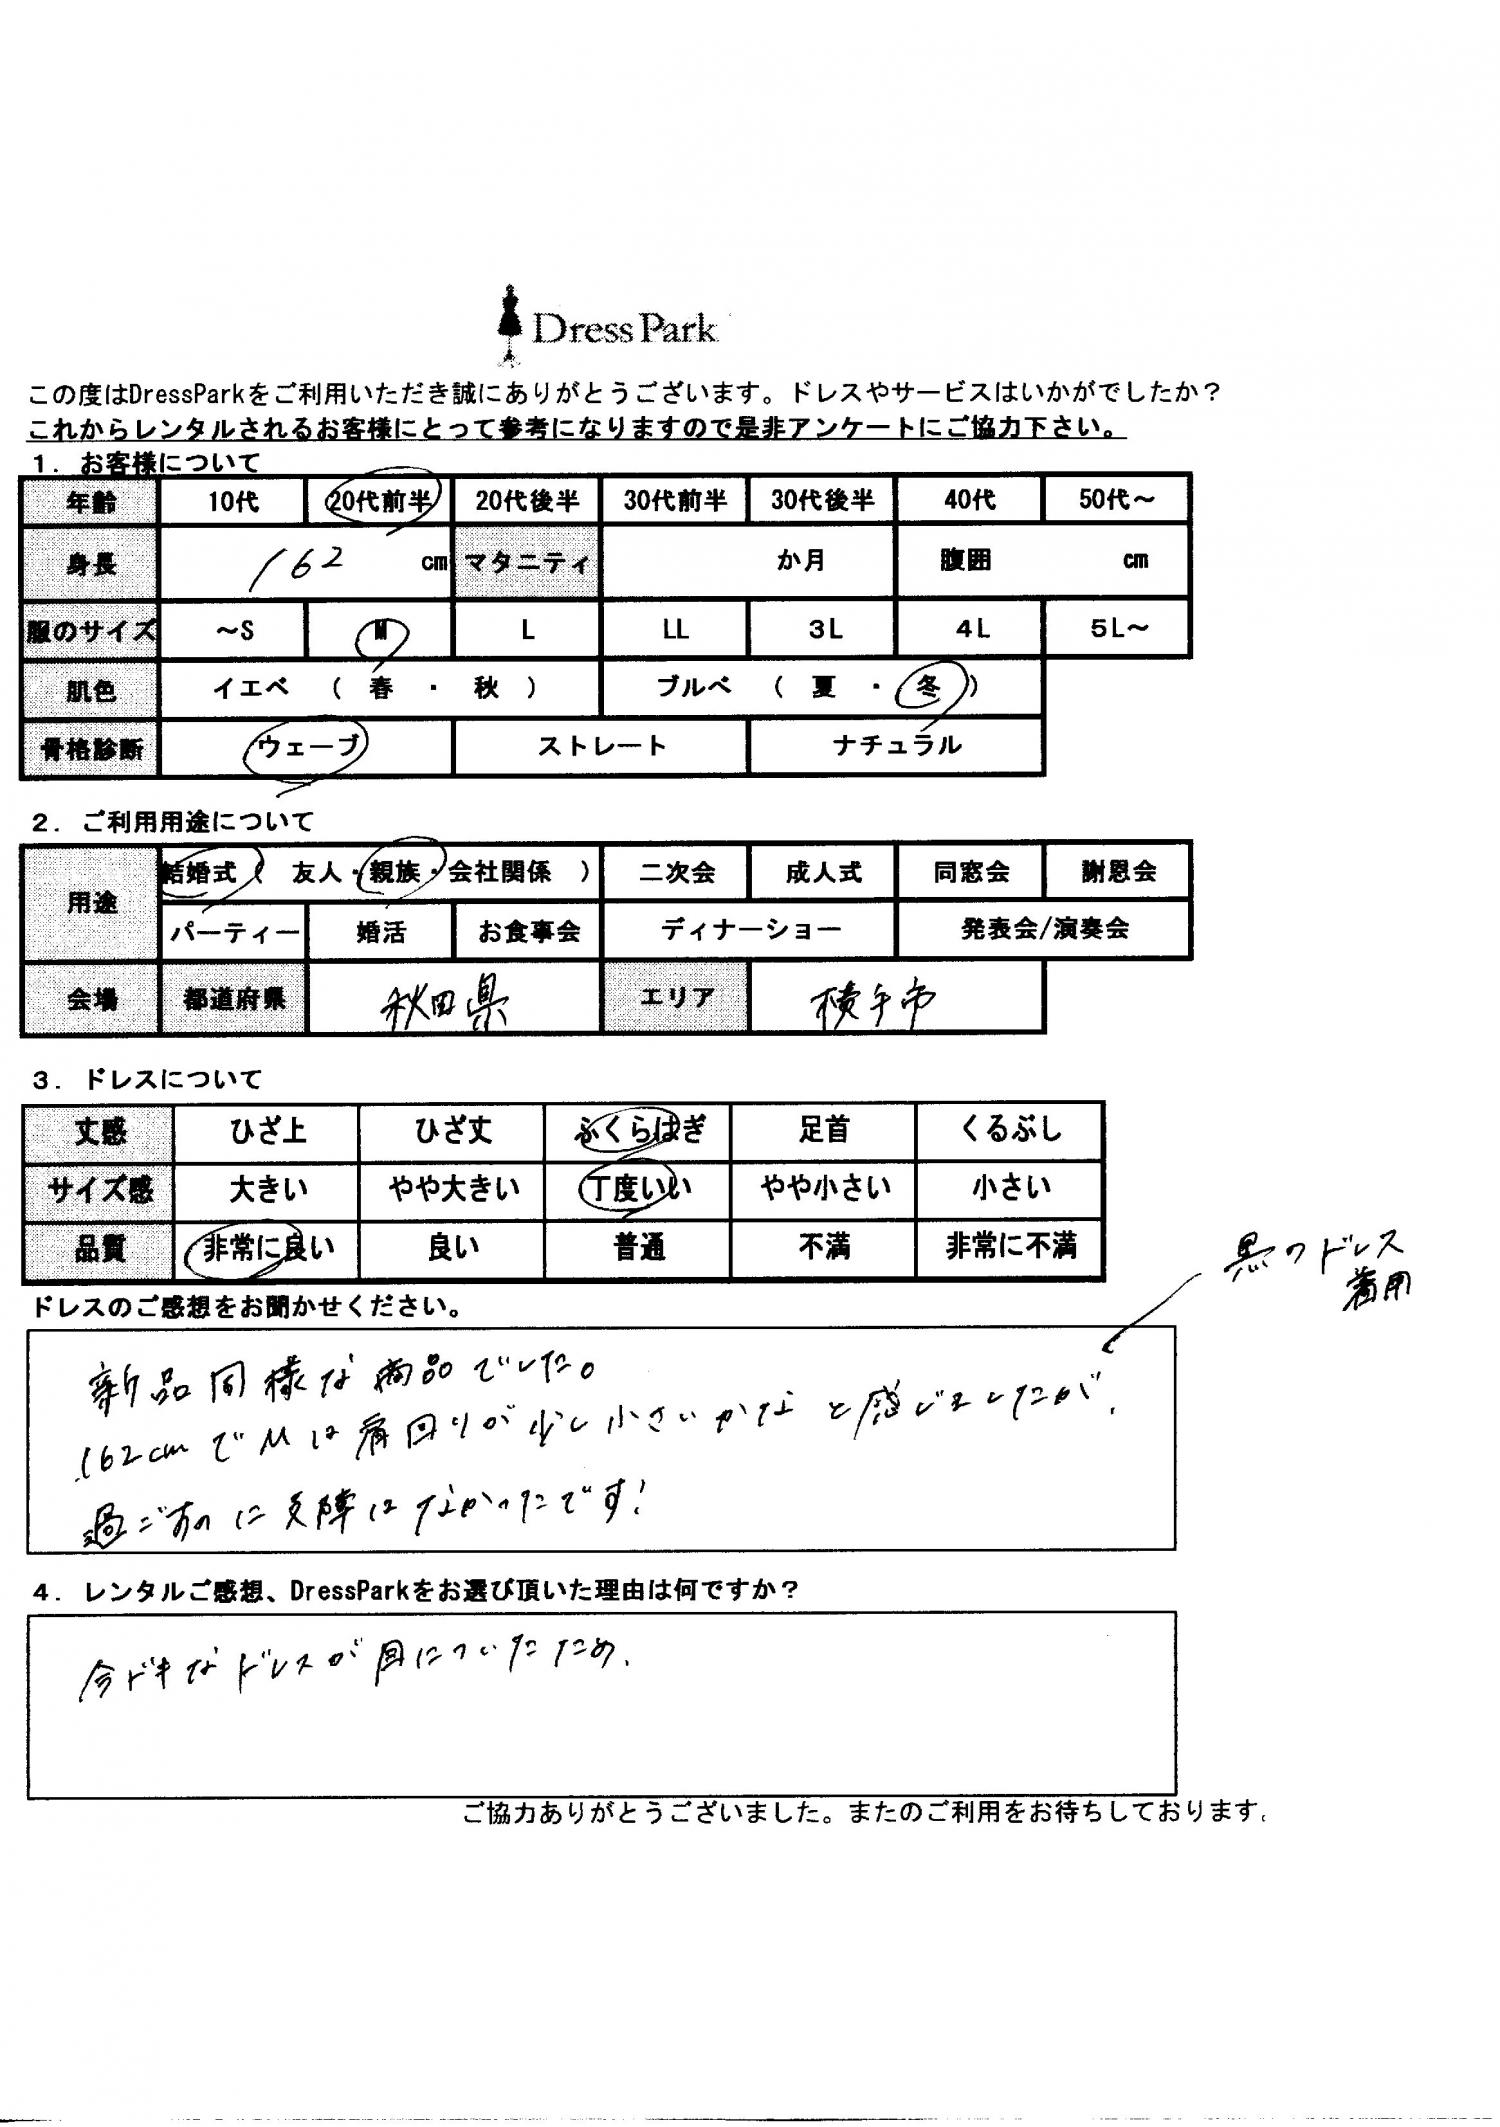 Dress Park
この度はDressParkをご利用いただき誠にありがとうございます。ドレスやサービスはいかがでしたか？
これからレンタルされるお客様にとって参考になりますので是非アンケートにご協力下さい。
１．お客様について
年齢 10代 20代前半 20代後半 30代前半 30代後半 40代 50代～
身長 162 cm マタニティ か月 腹囲 cm
服のサイズ ～S M L LL 3L 4L 5L～
肌色 イエベ （ 春 ・ 秋 ） ブルベ （ 夏 ・ 冬 ）
骨格診断 ウェーブ ストレート ナチュラル
２．ご利用用途について
用途 結婚式（ 友人・親族・会社関係 ） 二次会 成人式 同窓会 謝恩会
パーティー 婚活 お食事会 ディナーショー 発表会/演奏会
会場 都道府県 秋田県 エリア 横手市
３．ドレスについて
丈感 ひざ上 ひざ丈 ふくらはぎ 足首 くるぶし
サイズ感 大きい やや大きい 丁度いい やや小さい 小さい
品質 非常に良い 良い 普通 不満 非常に不満
黒のドレス
着用
ドレスのご感想をお聞かせください。
新品同様な商品でした。
162cmでMは肩回りが少し小さいかなと感じましたが、
過ごすのに支障はなかったです！
４．レンタルご感想、DressParkをお選び頂いた理由は何ですか？
今ドキなドレスが目についたため、
ご協力ありがとうございました。またのご利用をお待ちしております。